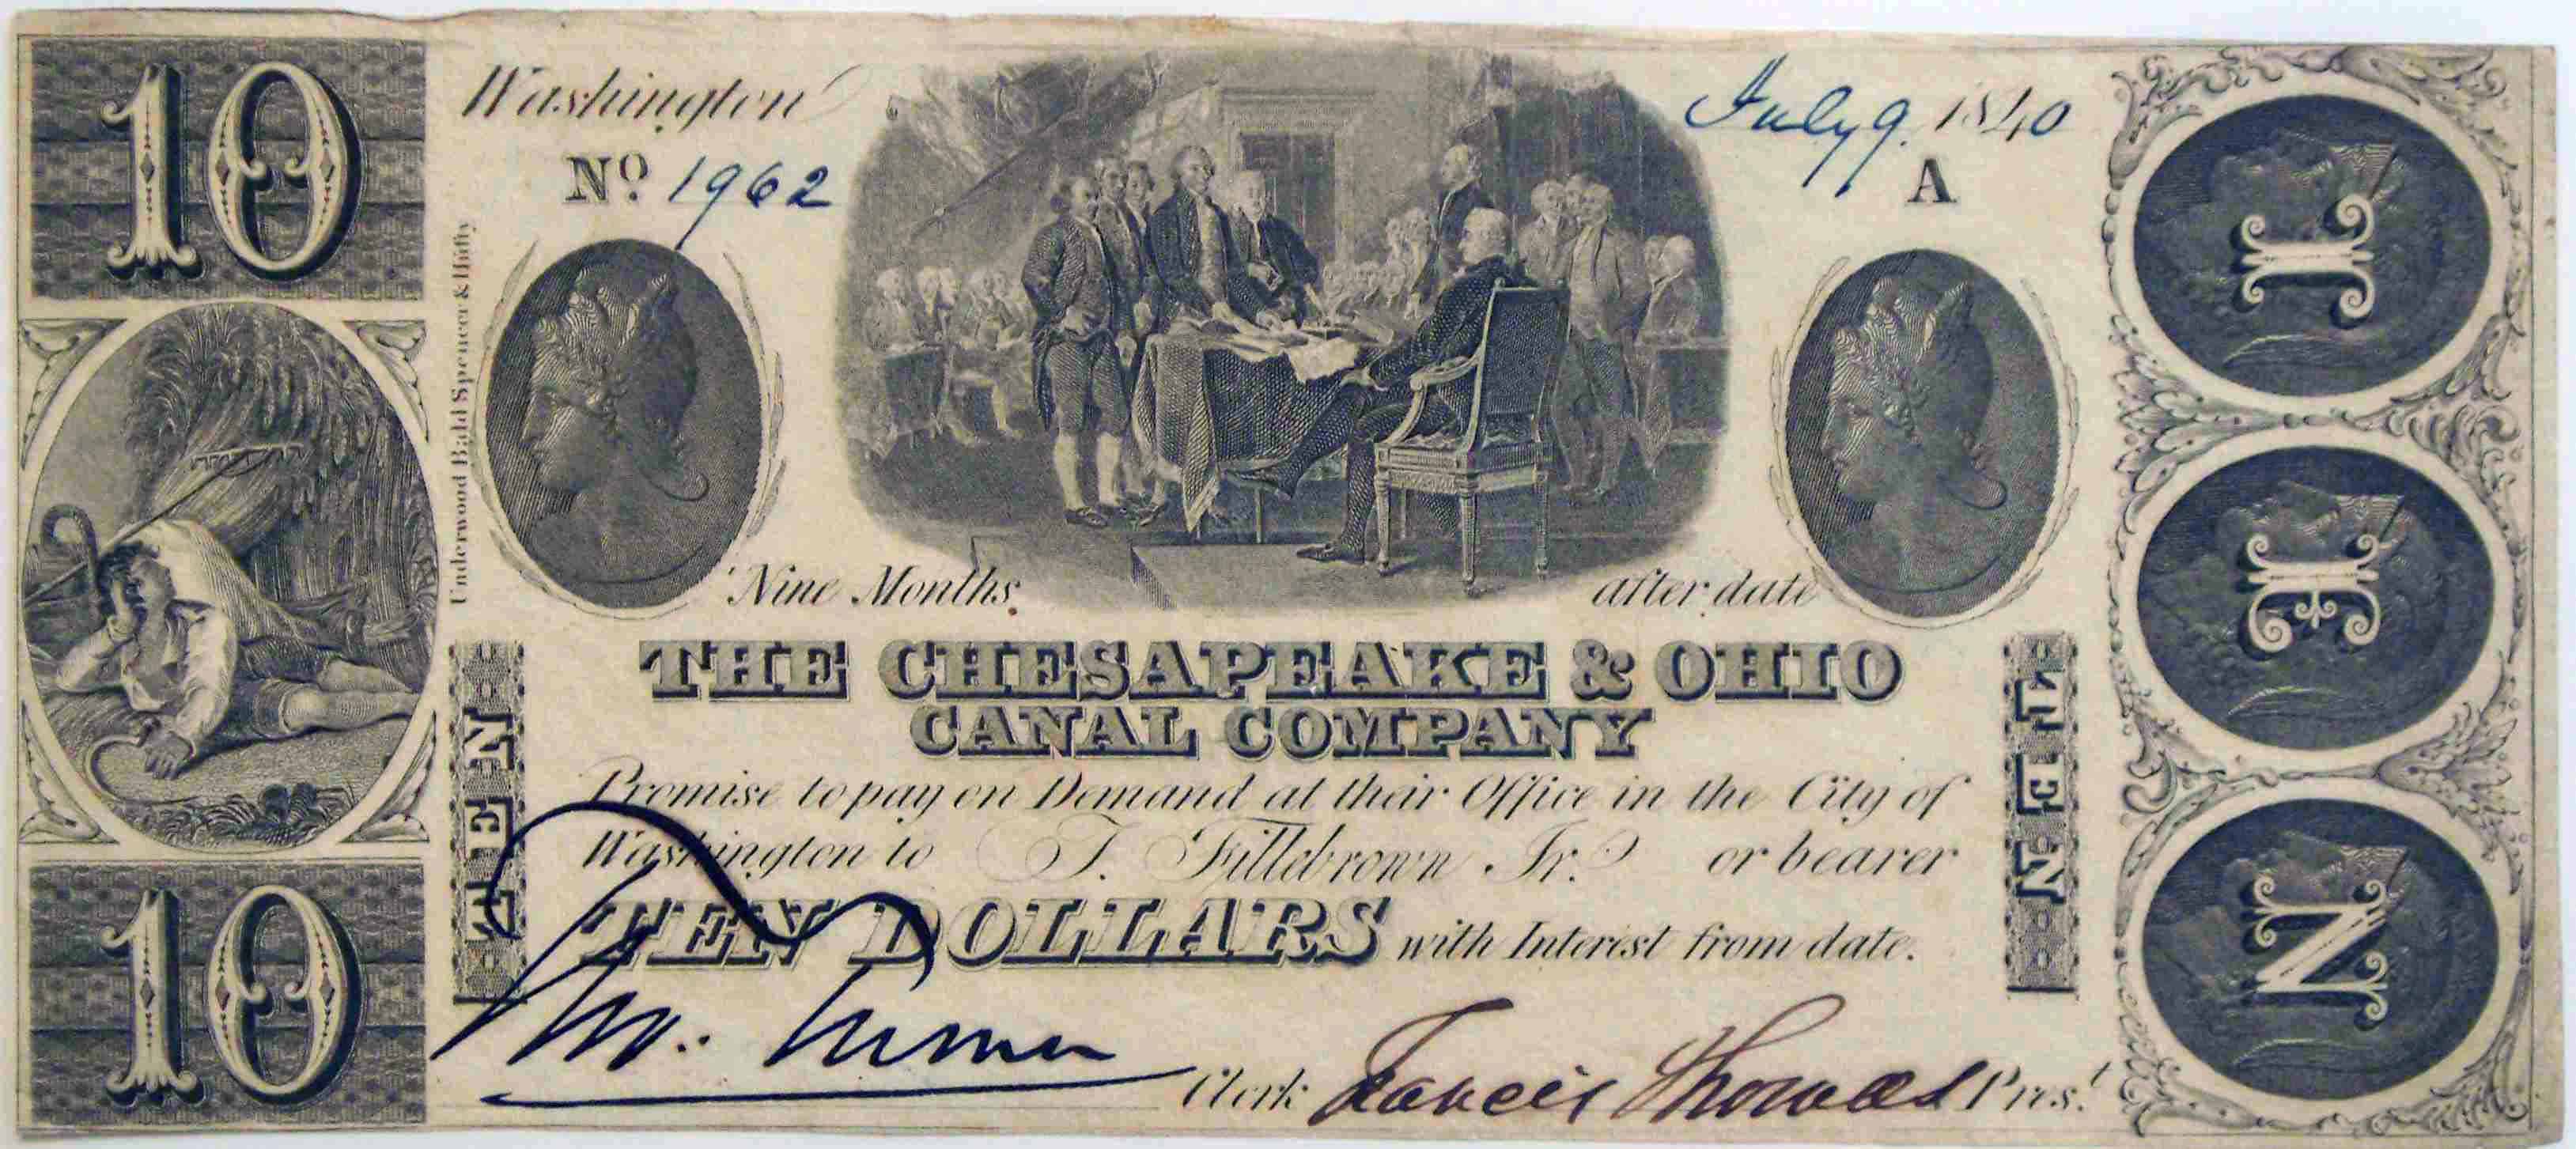 10
Washington
July 9. 1840
Nº 1962
A
Underwood Bald Spencer & Hufty
Nine Months after date
THE CHESAPEAKE & OHIO
CANAL COMPANY
Promise to pay on Demand at their Office in the City of
Washington to T. Fillebrown Jr. or bearer
TEN DOLLARS with Interest from date.
TEN
TEN
10
Clerk Francis Thomas Prest
T
E
N